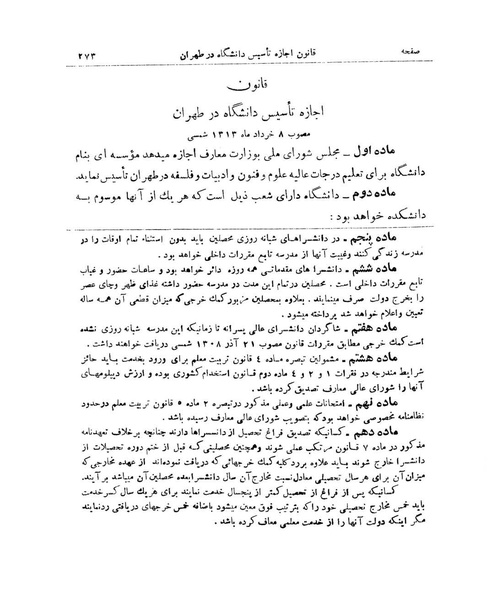 صفحه قانون اجازه تأسیس دانشگاه در طهران ۲۷۳
قانون
اجازه تأسیس دانشگاه در طهران
مصوب ۸ خرداد ماه ۱۳۱۳ شمسی
ماده اول ـ مجلس شورای ملی بوزارت معارف اجازه میدهد مؤسسه ای بنام
دانشگاه برای تعلیم درجات عالیه علوم و فنون و ادبیات و فلسفه در طهران تأسیس نماید.
ماده دوم ـ دانشگاه دارای شعب ذیل است که هر یك از آنها موسوم به
دانشکده خواهد بود :
ماده پنجم ـ در دانشسراهای شبانه روزی محصلین باید بدون استثناء تمام اوقات را در
مدرسه زندگی کنند وغیبت آنها از مدرسه تابع مقررات داخلی خواهد بود .
ماده ششم ـ دانشسرا های مقدماتی همه روزه دائر خواهد بود و ساعات حضور و غیاب
تابع مقررات داخلی است . محصلین در تمام این مدت در مدرسه حضور داشته غذای ظهر وچای عصر
را بخرج دولت صرف مینمایند . بعلاوه بمحصلین مزبور كمك خرجی که میزان قطعی آن همه ساله
تعیین واعلام خواهد شد پرداخته میشود .
ماده هفتم ـ شاگردان دانشسرای عالی پسرانه تا زمانیکه این مدرسه شبانه روزی نشده
است كمك خرجی مطابق مقررات قانون مصوب ۲۱ آذر ۱۳۰۸ شمسی دریافت خواهند داشت .
ماده هشتم ـ مشمولین تبصره ماده ٤ قانون تربیت معلم برای ورود بخدمت باید حائز
شرایط مندرجه در فقرات ۱ و ۲ و ٤ ماده دوم قانون استخدام کشوری بوده و ارزش دیپلومهای
آنها را شورای عالی معارف تصدیق کرده باشد .
ماده نهم ـ امتحانات علمی وعملی مذکور درتبصره ۲ ماده ٥ قانون تربیت معلم درحدود
نظامنامه مخصوصی خواهد بود که بتصویب شورای عالی معارف رسیده باشد .
ماده دهم ـ کسانیکه تصدیق فراغ تحصیل از دانسسراها دارند چنانچه برخلاف تعهدنامه
مذکور در ماده ۷ قانون مرتکب عملی شوند وهمچنین محصلینی که قبل از ختم دوره تحصیلات از
دانشسرا خارج شوند باید علاوه بررد کلیه كمك خرجهائی که دریافت نموده‌اند از عهده مخارجی که
میزان آن برای هر سال تحصیلی معادل نسبت مخارج آن سال دانشسرا بعده محصلین آن میباشد بر آیند.
کسانیکه پس از فراغ از تحصیل کمتر از پنجسال خدمت نمایند برای هر یك سال کسر خدمت
باید خمس مخارج تحصیلی خود را که بترتیب فوق معین میشود باضافه خمس خرجهای دریافتی ردنمایند
مگر اینکه دولت آنها را از خدمت معلمی معاف کرده باشد .